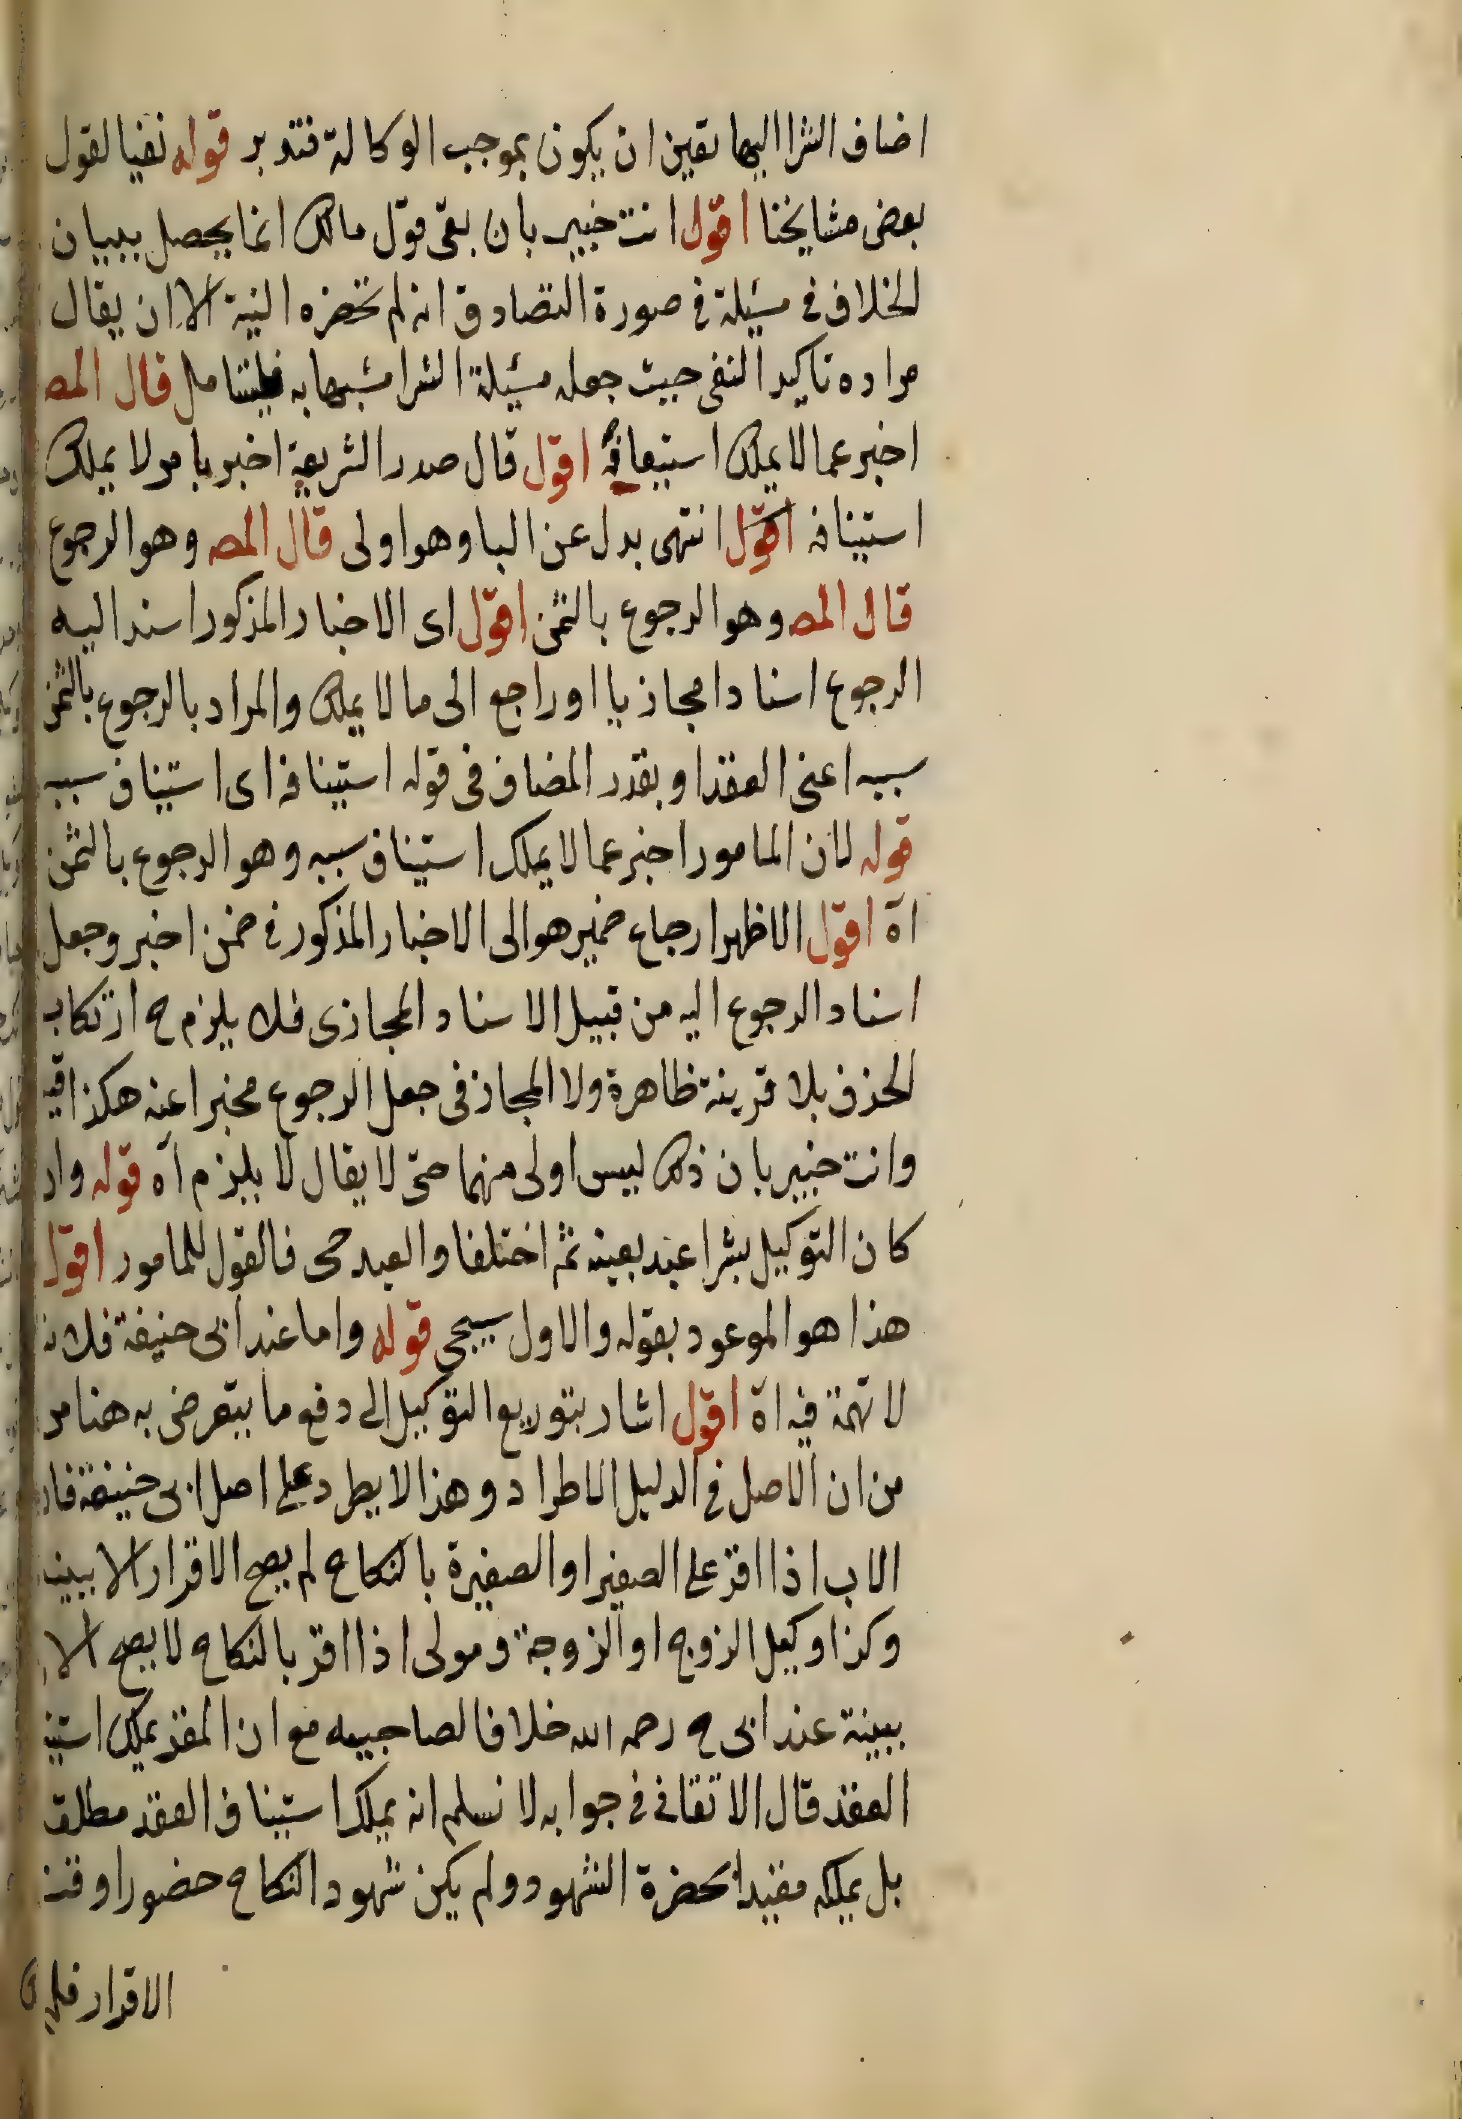 اضاف الشرا اليها يقين ان يكون بموجب الوكالة فتدبر قوله نفيا لقول
بعض مشايخنا اقول انت خبير بان بقى قول مالك انما يحصل ببيان
الخلاف في مسئلة في صورة التصادق انه لم تحضره النية الا ان يقال
مراده تاكيد النفى حيث جعله مسئلة الشرا مشبها به فليتامل قال المص
اخبر عما لا يملك استينافه اقول قال صدر الشريعة اخبر بامر لا يملك
استينافه اقول انتهى بدل عن البا وهو اولى قال المص وهو الرجوع
قال المص وهو الرجوع بالثمن اقول اى الاخبار المذكور اسند اليه
الرجوع اسنادا مجازيا او راجع الى ما لا يملك والمراد بالرجوع بالثمن
سببه اعنى العقد او بقدر المضاف فى قوله استينافه اى استيناف سببه
قوله لان المامور اخبر عما لا يملك استيناف سببه وهو الرجوع بالثمن
اه اقول الاظهر ارجاع ضمير هو الى الاخبار المذكور في ضمن اخبر وجعل
اسناد الرجوع اليه من قبيل الاسناد المجازى فلا يلزم ح ارتكاب
الحذف بلا قرينة ظاهرة ولا المجاز فى جعل الرجوع مخبرا عنه هكذا قيل
وانت خبير بان ذلك ليس اولى منهما حتى لا يقال لا يلزم اه قوله وان
كان التوكيل بشرا عبد بعينه ثم اختلفا والعبد حى فالقول للمامور اقول
هذا هو الموعود بقوله والاول سيجى قوله واما عند ابى حنيفة فلانه
لا تهمة فيه اه اقول اشار بتوريع التوكيل الى دفع ما يتعرض به هنا من
من ان الاصل في الدليل الاطراد وهذا لا يطرد على اصل ابى حنيفة فان
الاب اذا اقر على الصغير او الصغيرة بالنكاح لم يصح الاقرار الا ببينة
وكذا وكيل الزوج او الزوجة ومولى اذا اقر بالنكاح لا يصح الا
ببينة عند ابى ح رحمه الله خلافا لصاحبيه مع ان المقر يملك استيناف
العقد قال الاتقانى في جوابه لا نسلم انه يملك استيناف العقد مطلقا
بل يملكه مقيدا بحضرة الشهود ولم يكن شهود النكاح حضورا وقت
الاقرار فلا